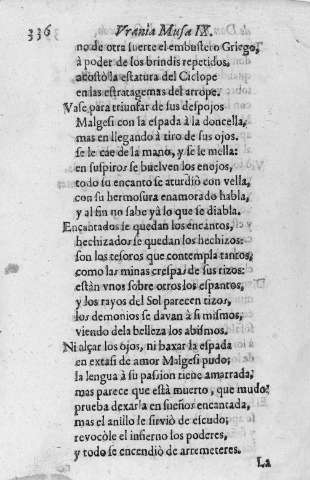 336
Vrania Musa IX.
no de otra suerte el embustero Griego,
à poder de los brindis repetidos,
acostò la estatura del Ciclope
en las estratagemas del arrope.
Vase para triunfar de sus despojos
Malgesi con la espada à la doncella,
mas en llegando à tiro de sus ojos.
se le cae de la mano, y se le mella:
en suspiros se buelven los enojos,
todo su encanto se aturdiò con vella,
con su hermosura enamorado habla,
y al fin no sabe yà lo que se diabla.
Encantados se quedan los encantos,
hechizados se quedan los hechizos:
son los tesoros que contempla tantos,
como las minas crespas de sus rizos:
estàn vnos sobre otros los espantos,
y los rayos del Sol parecen tizos,
los demonios se davan à si mismos,
viendo dela belleza los abismos.
Ni alçar los ojos, ni baxar la espada
en extasi de amor Malgesi pudo;
la lengua à su passion tiene amarrada;
mas parece que està muerto, que mudo:
prueba dexarla en sueños encantada,
mas el anillo le sirviò de escudo;
revocòle el infierno los poderes,
y todo se encendiò de arremeteres.
La